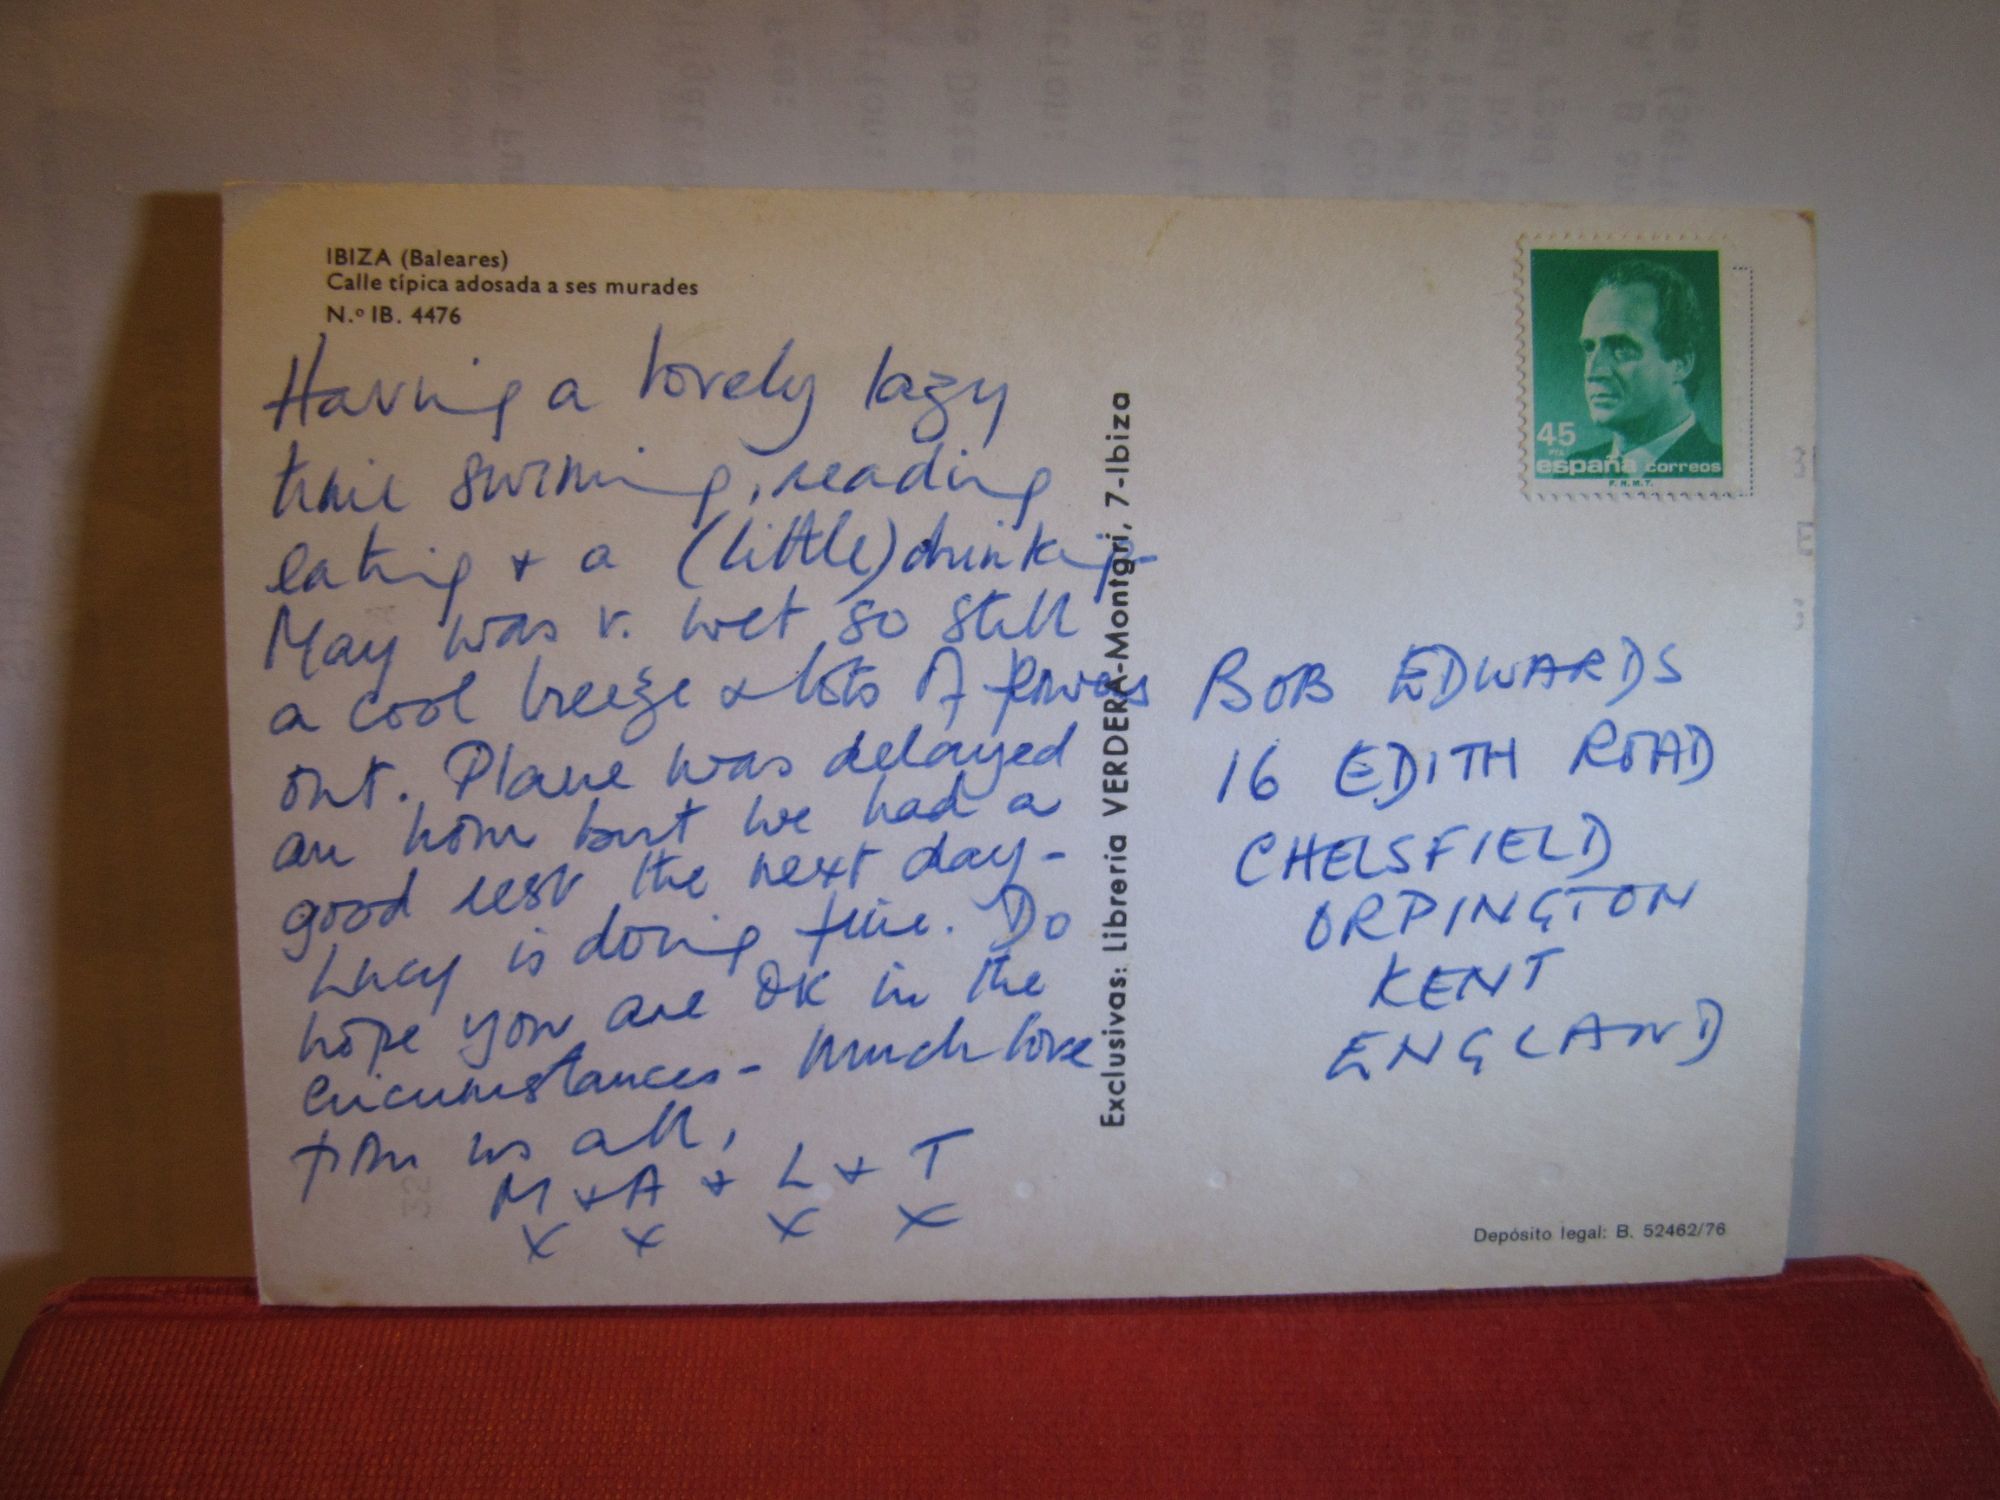 IBIZA (Baleares)
Calle típica adosada a ses murades
N.º IB. 4476
Having a lovely lazy
time swimming, reading
eating + a (little) drinking -
May was v. wet so still
a cool breeze + lots of flowers
out. Plane was delayed
an hour but we had a
good rest the next day -
Lucy is doing fine. Do
hope you are OK in the
circumstances - Much love
from us all,
M + A + L + T
x x x x
Exclusivas: Libreria VERDERA-Montgri, 7-Ibiza
45
PTA
españa correos
F.N.M.T.
BOB EDWARDS
16 EDITH ROAD
CHELSFIELD
ORPINGTON
KENT
ENGLAND
Depósito legal: B. 52462/76